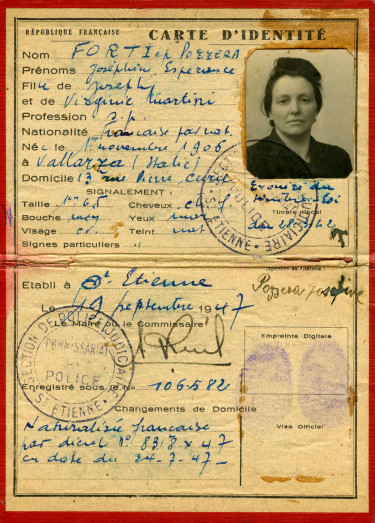 RÉPUBLIQUE FRANÇAISE
CARTE D'IDENTITÉ
Nom FORTI ep POZZERA
Prénoms Joséphin Espérance
Fille de Joseph
et de Virginie Martini
Profession S.p.
Nationalité française par nat.
Née le 1 novembre 1906
à Vallarza (Italie)
Domicile 13 rue Pierre Curie
SIGNALEMENT :
Taille 1m65 Cheveux
Bouche moy Yeux
Visage ov. Teint mat
Signes particuliers "
Exonéré du
timbre loi
Timbre fiscal
du
Etabli à St Etienne
Le 19 septembre 1947
Le Maire ou le Commissaire
Pozzera
SECTION DE POLICE JUDICIAIRE
COMMISSARIAT
DE
POLICE
ST ETIENNE
Enregistré sous le No 106582
Empreinte Digitale
Visa Officiel
Changements de Domicile
Naturalisée française
par décret N° 8313 x 47
en date du 24-7-47-